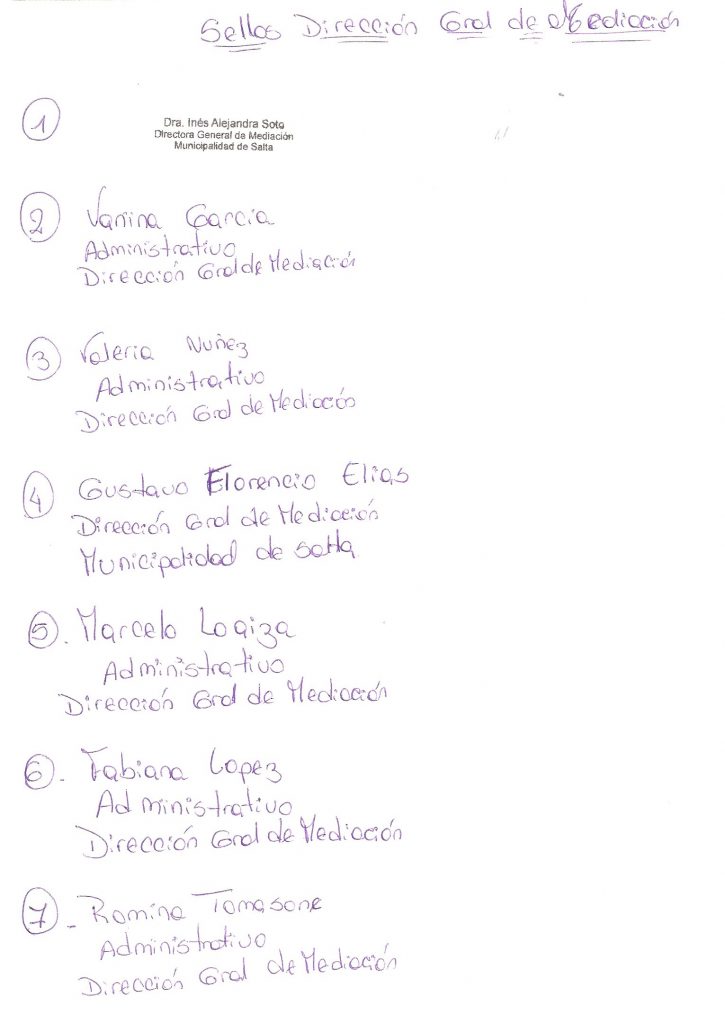 Sellos Dirección Gral de Mediación
1
Dra. Inés Alejandra Soto
Directora General de Mediación
Municipalidad de Salta
2 Vanina Garcia
Administrativo
Dirección Gral de Mediación
3 Valeria Nuñez
Administrativo
Dirección Gral de Mediación
4 Gustavo Florencio Elias
Dirección Gral de Mediación
Municipalidad de Salta
5. Marcelo Loaiza
Administrativo
Dirección Gral de Mediación
6. Fabiana Lopez
Administrativo
Dirección Gral de Mediación
7 - Romina Tomasone
Administrativo
Dirección Gral de Mediación